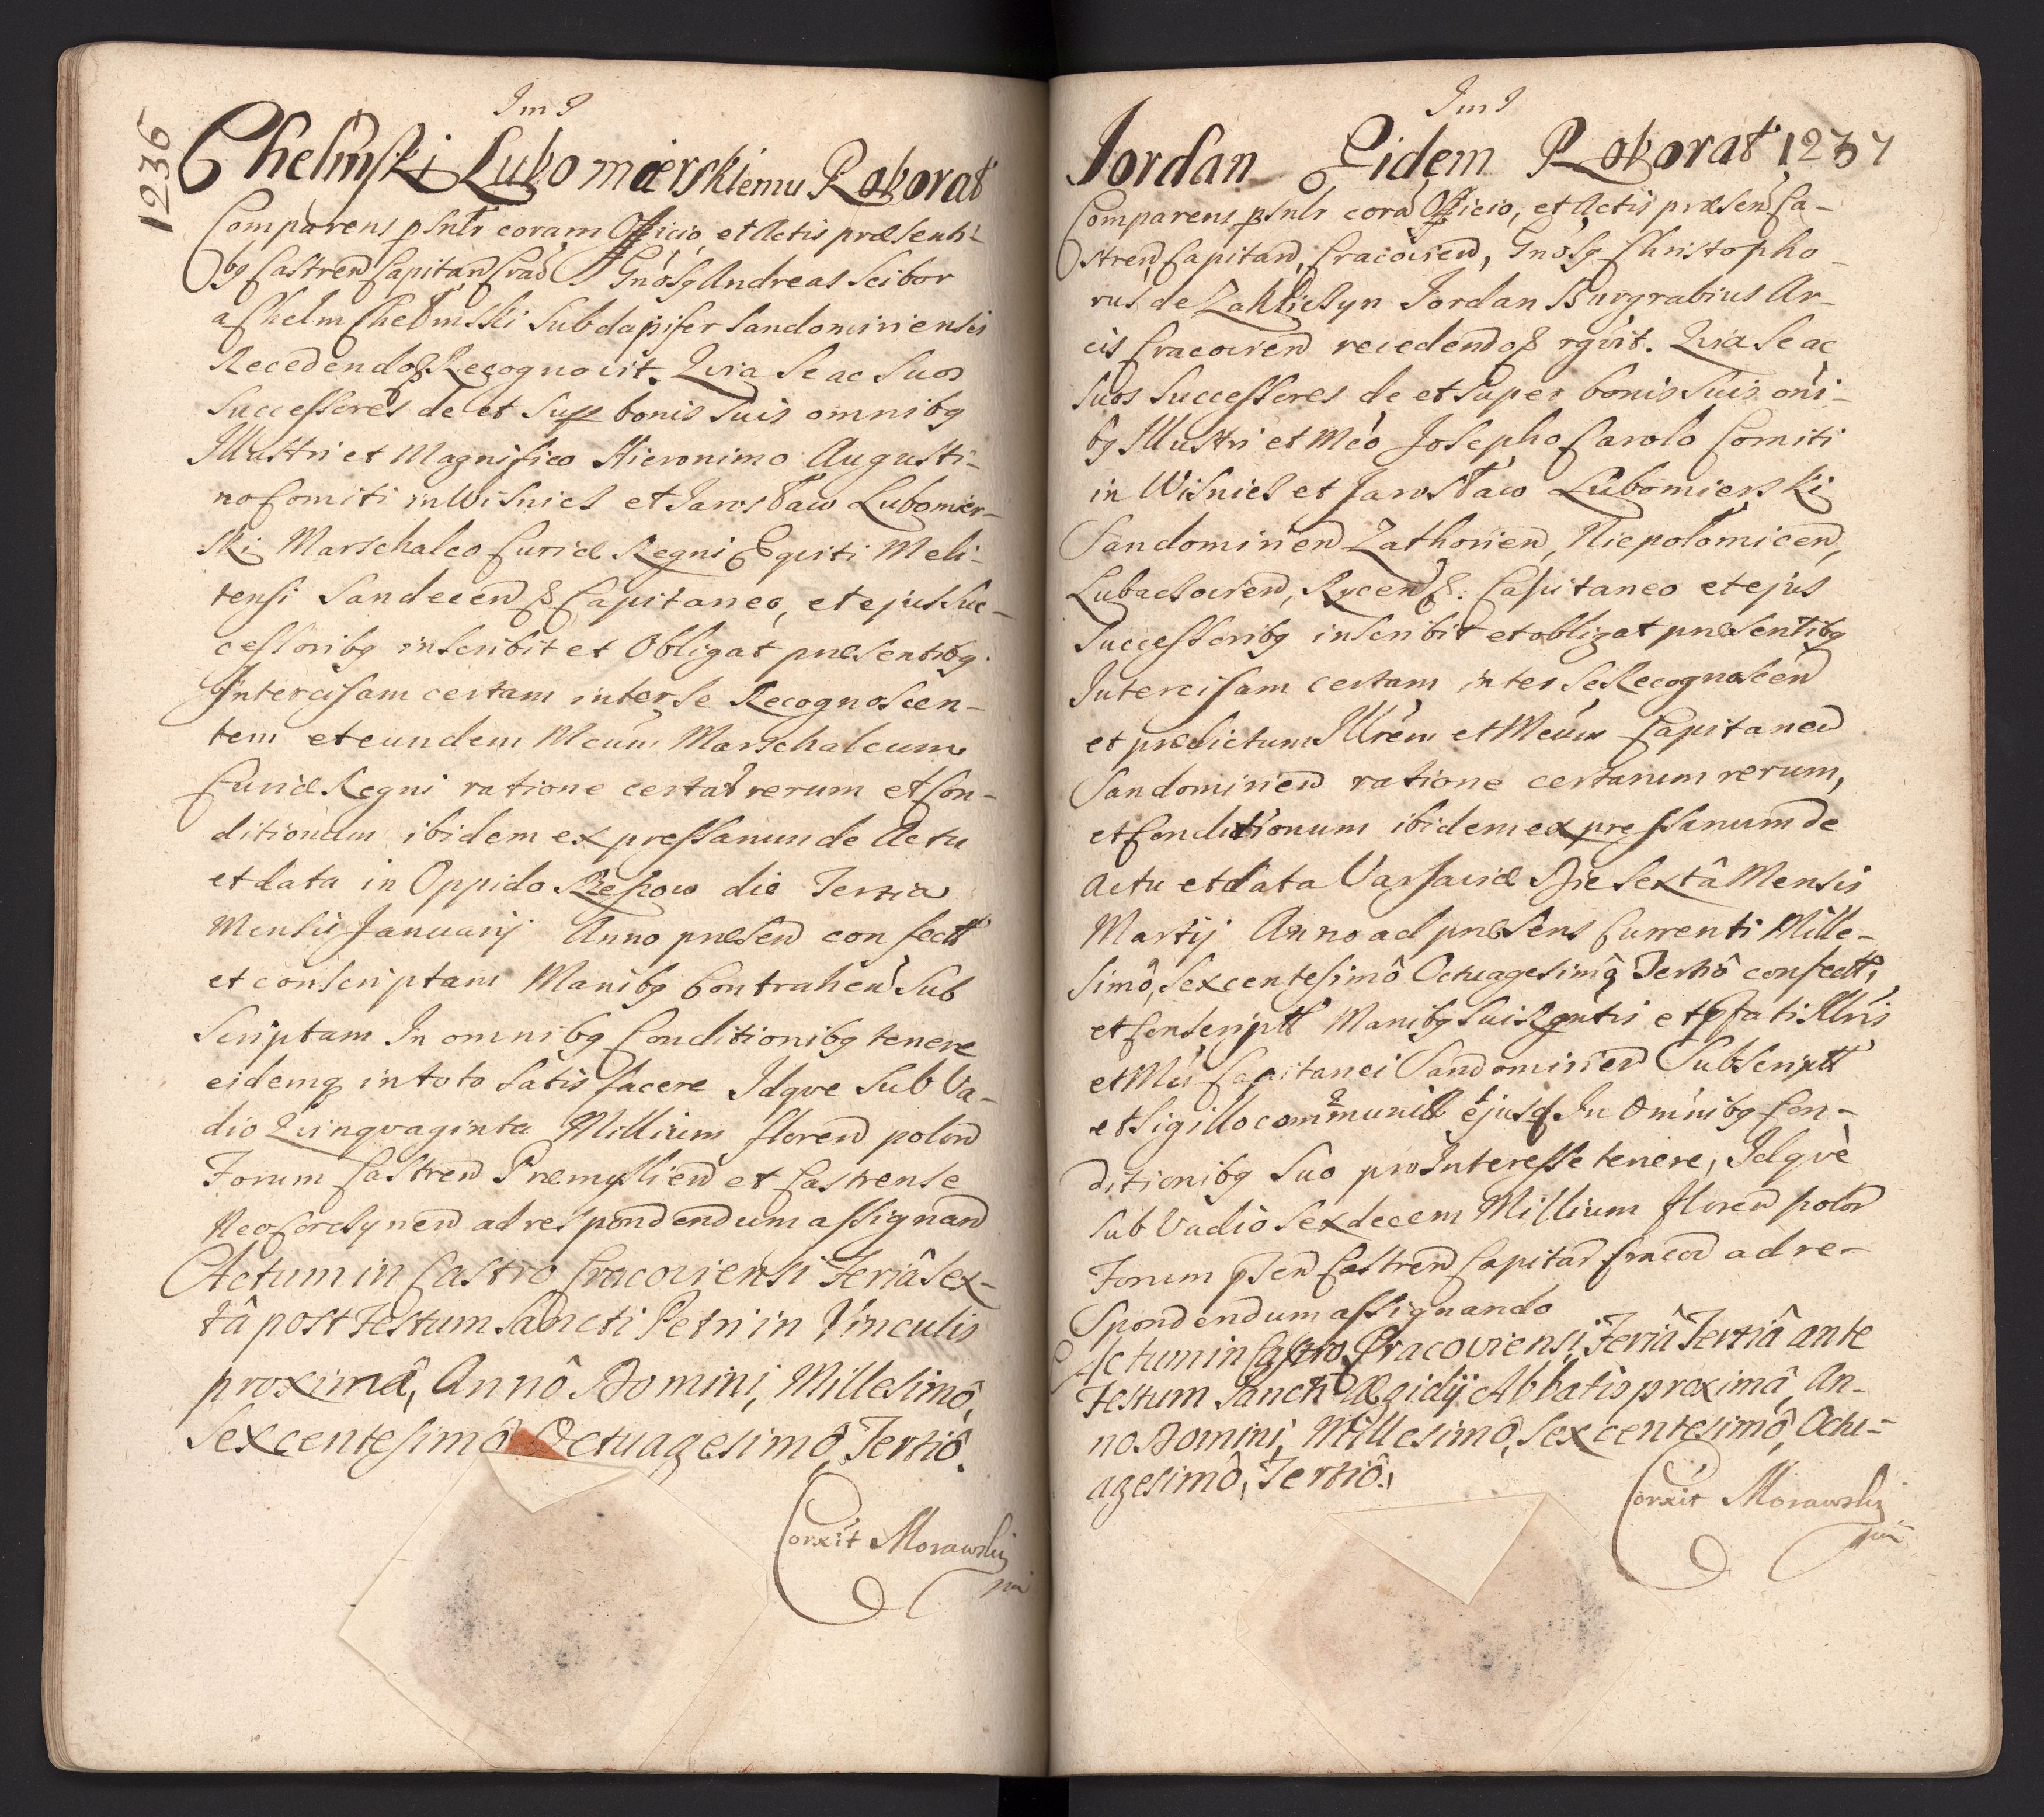 1236
Im J
Chełmski Lubomierskiemu Roborat
Comparens psnlr coram Officio, et Actis præsenti-
bg Castren Capitan Crac Gnosg Andreas Scibor
a Chelm Chełmsski Subdapifer Sandomiriensis
Recedendo & Recognovit. Qvia Se ac Suos
Successores de et Supp bonis Suis omnibg
Illustri et Magnifico Hieronimo Augusti-
no Comiti in Wisnicz et Jarosław Lubomier-
ski Marschalco Curiæ Regni Eqviti Meli-
tensi Sandecen & Capitaneo, et ejus Suc-
cessoribg inscribit et Obligat præsentibg.
Intercisam certam inter se Recognoscen-
tem et eundem Mcum Marschalcum
Curiæ Regni ratione certar rerum et Con-
ditionum ibidem expressarum de Actu
et data in Oppido Rzeszow die Tertia
Mensis Januarij Anno præsen confectt
et conscriptam Manibg Contrahen Sub
Scriptam In omnibg Conditionibg tenere
eidemq in toto Satis facere Idqve Sub Va-
dio Qvinqvaginta Millium floren polon
Forum Castren Præmyslien et Castrense
Neoforczynen ad respondendum assignan
Actum in Castro Cracoviensi Feriâ Sex-
tâ post Festum Sancti Petri in Vinculis
proximâ, Annô Domini, Millesimô,
Sexcentesimô Octuagesimô, Tertiô.
Corxit Morawski
mp
Im J
Jordan Eidem Roborat 1237
Comparens psnlr cora Officio, et Actis præsen Ca-
stren, Capitan, Cracovien, Gnosg Christopho-
rus de Zakliczyn Jordan Burgrabius Ar-
cis Cracovien recedendo & rgvit. Qvia Se ac
Suos Successores de et Super bonis Suis oni-
bg Illustri et Mco Josepho Carolo Comiti
in Wisnicz et Jarosław Lubomierski
Sandomirien Zathorien, Niepołomicen,
Lubaczovien, Rycen &. Capitaneo et ejus
Successoribg inscribit et obligat præsentibg
Intercisam certam inter se Recognoscen
et prædictum Illrem et Mcum Capitaneu
Sandomirien ratione certarum rerum,
et Conditionum ibidem expressarum de
Actu et data Varsaviæ Die Sextâ Mensis
Martij Anno ad præsens Currenti Mille-
simô, Sexcentesimô Octuagesimô, Tertiô confectt,
et Conscriptt Manibg Suis Rgntis et pfati Illris
et Mci Capitanei Sandomirien Subscriptt
et Sigillo communitt ejusd In Omnibg Con-
ditionibg Suo pro Interesse tenere, Idqvè
Sub Vadiô Sexdecem Millium floren polon
Forum psen Castren Capitan Cracov ad re-
Spondendum assignando
Actum in Castro Cracoviensi, Feriâ Tertiâ ante
Festum Sancti Ægidij Abbatis proximâ, An-
no Domini, Millesimô, Sexcentesimô, Octu-
agesimô, Tertiô.
Corxit Morawski
mp